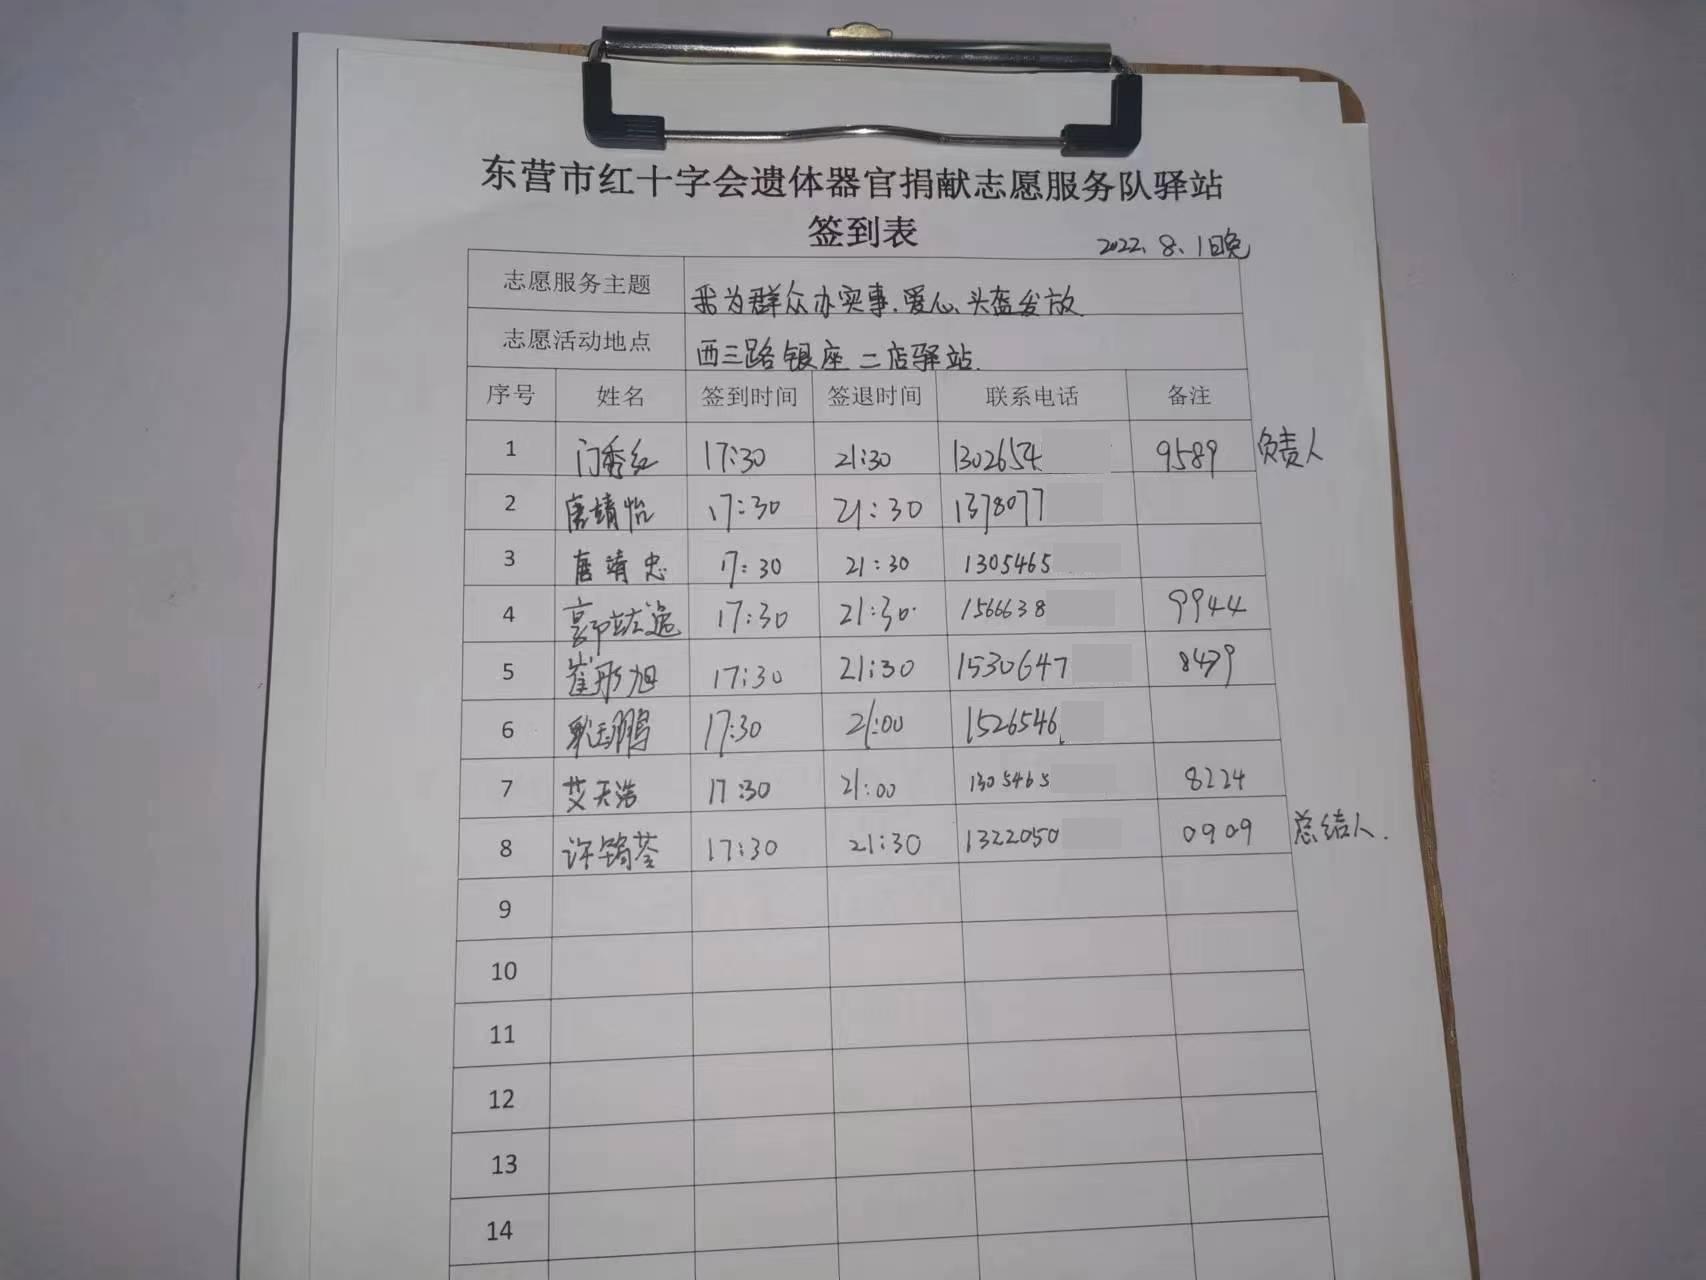 东营市红十字会遗体器官捐献志愿服务队驿站
签到表
2022.8.1日晚
志愿服务主题 我为群众办实事.爱心头盔发放
志愿活动地点 西三路银座二店驿站.
序号 姓名 签到时间 签退时间 联系电话 备注
1 门秀红 17:30 21:30 1302654 9589 负责人
2 唐靖怡 17:30 21:30 1378077
3 唐靖忠 17:30 21:30 1305465
4 17:30 21:30 1566638 9944
5 崔彤旭 17:30 21:30 1530647 8479
6 17:30 21:00 1526546
7 艾天浩 17:30 21:00 1305465 8224
8 17:30 21:30 1322050 0909 总结人.
9
10
11
12
13
14